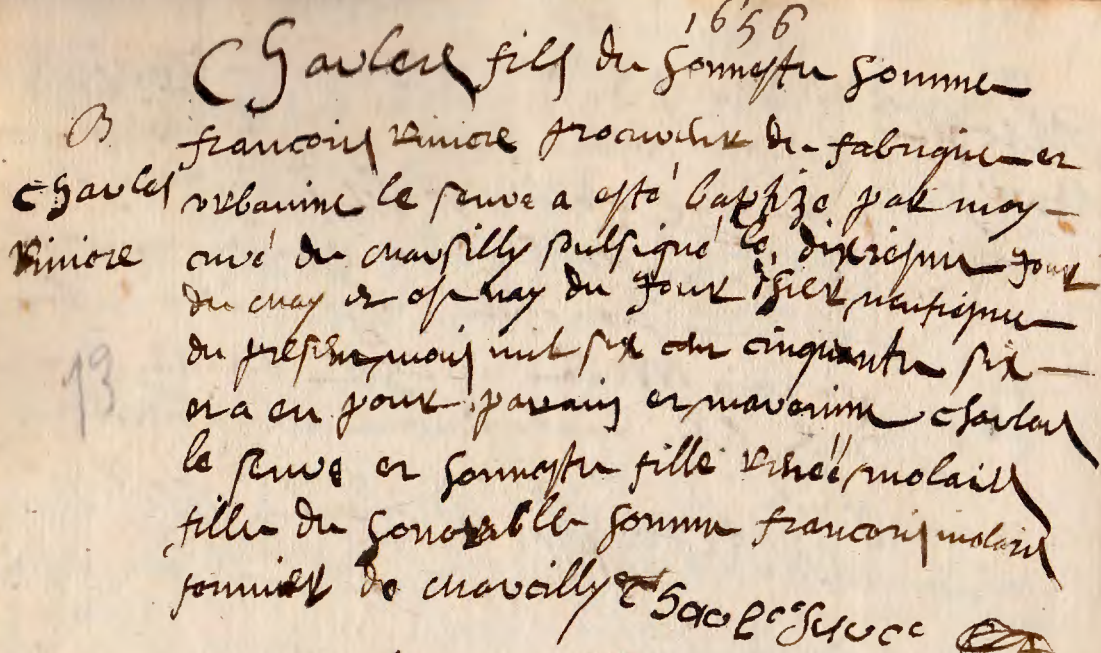 1656
Charles fils de honneste homme
B
Charles
Riviere
francois Riviere procureur de fabrique et
urbanne le feuve a esté baptizé par moy
curé de marsilly soubsigné le dixiesme jour
de may et est nay du jour d'hier neufiesme
du present mois mil six cen cinquante six
et a eu pour parain et maraine charles
le feuve et honneste fille Renée molais
fille de honorable homme francois molais
fermier de marcilly
Charles feuve
13